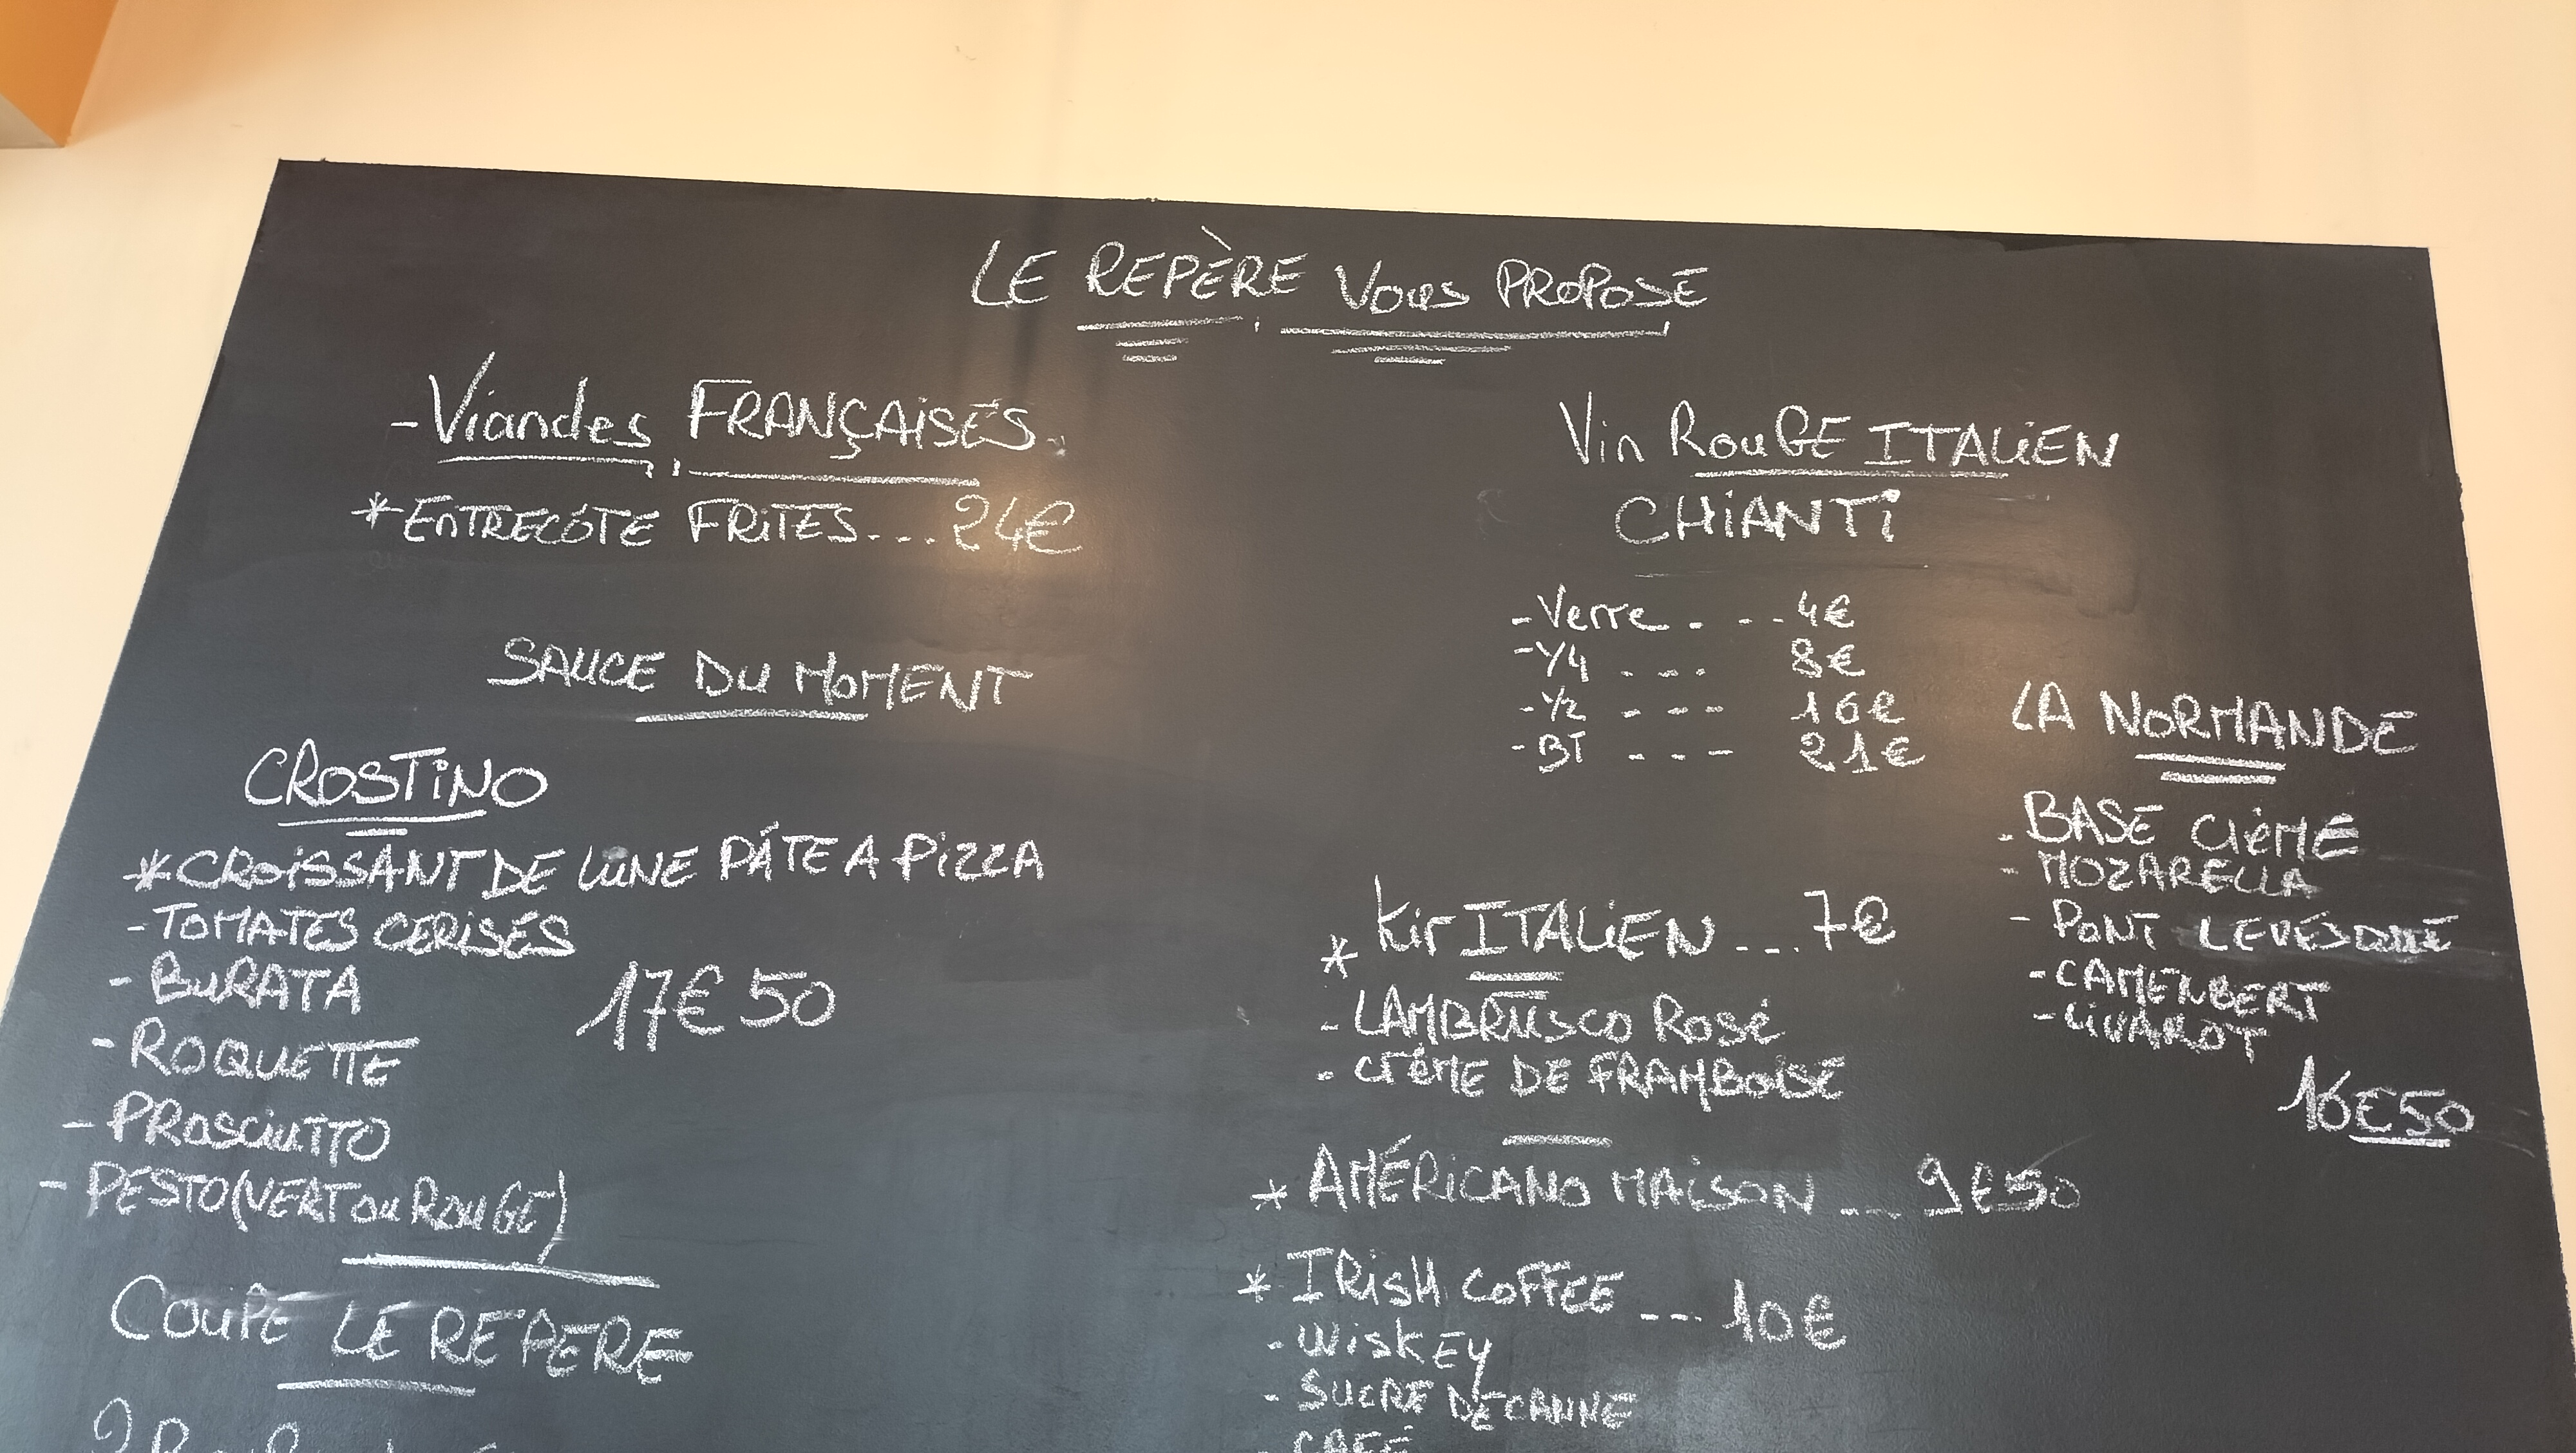 LE REPÈRE VOUS PROPOSE
- Viandes FRANÇAISES.
* ENTRECÔTE FRITES... 24€
SAUCE DU MOMENT
CROSTINO
* CROISSANT DE LUNE PÂTE A PIZZA
- TOMATES CERISES
- BURATA
17€50
- ROQUETTE
- PROSCIUTTO
- PESTO (VERT OU ROUGE)
COUPE LE REPERE
Vin ROUGE ITALIEN
CHIANTI
- Verre - - - - 4€
- 1/4 - - - 8€
- 1/2 - - - - 16€
- BT - - - 21€
* Kir ITALIEN ... 7€
- LAMBRUSCO Rosé
- crème DE FRAMBOISE
* AMÉRICANO MAISON ... 9€50
* IRISH COFFEE --- 10€
- WISKEY
- SUCRE DE CANNE
- CAFÉ
LA NORMANDE
- BASE crème
- MOZARELLA
- PONT LEVESQUE
- CAMENBERT
- LIVAROT
16€50